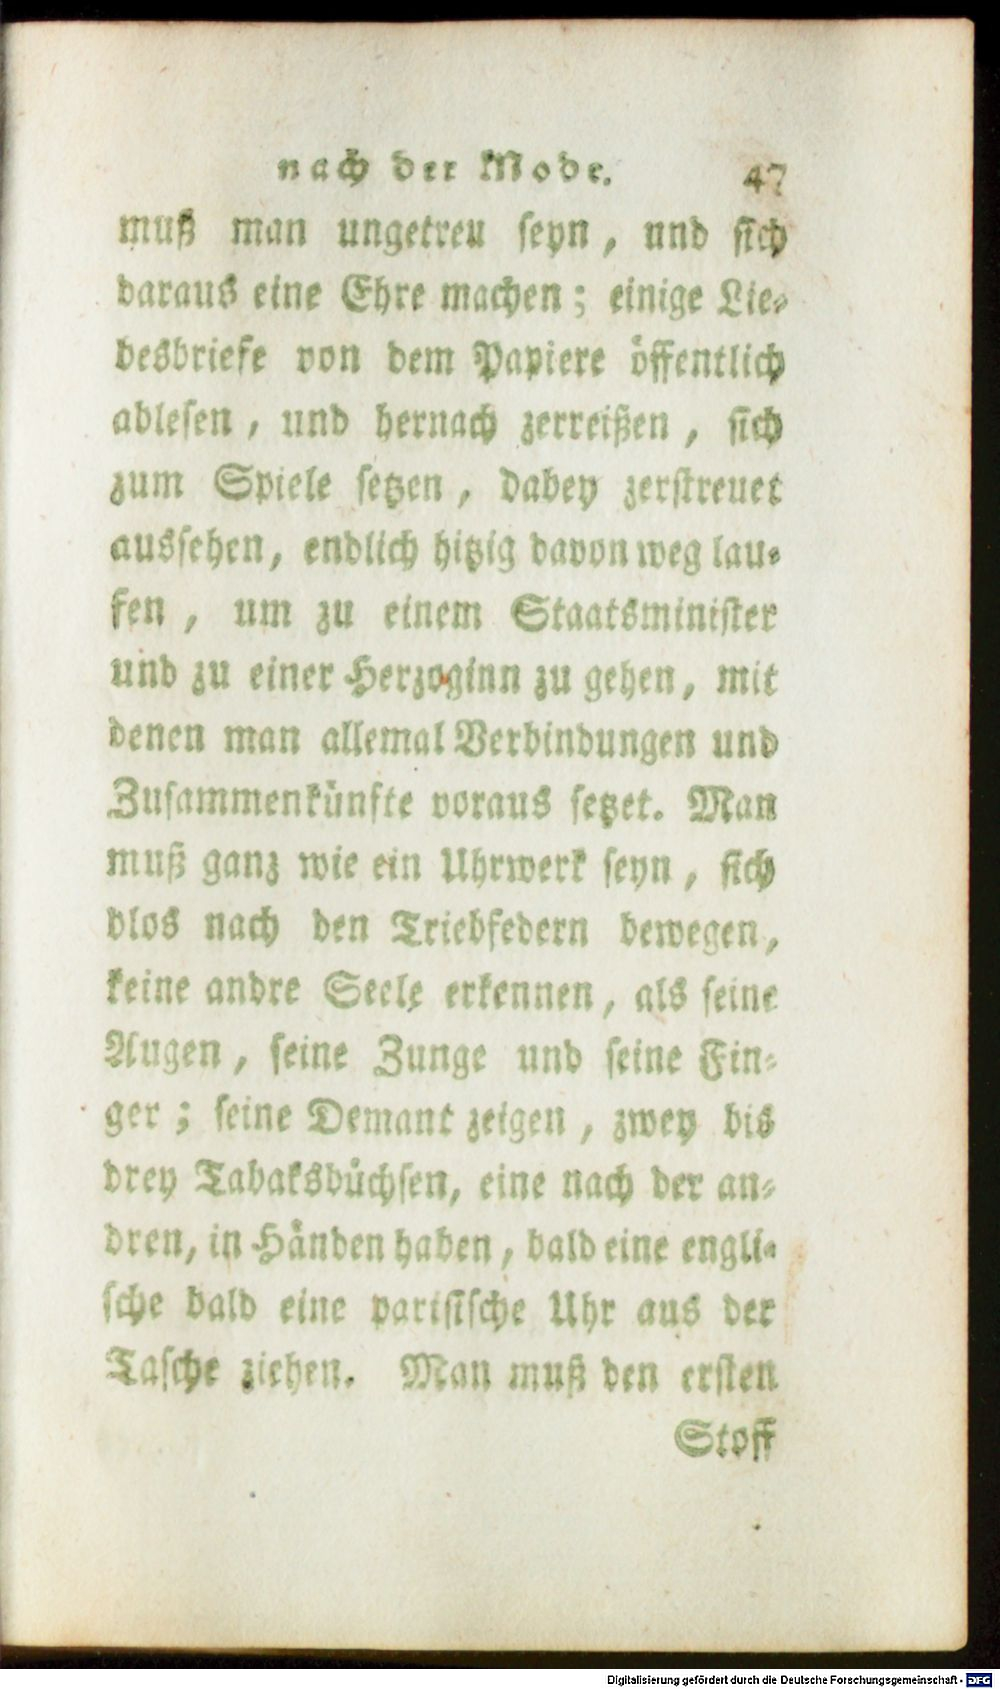 nach der Mode. 47
muß man ungetreu seyn, und sich
daraus eine Ehre machen; einige Lie-
besbriefe von dem Papiere öffentlich
ablesen, und hernach zerreißen, sich
zum Spiele setzen, dabey zerstreuet
aussehen, endlich hitzig davon weg lau-
fen, um zu einem Staatsminister
und zu einer Herzoginn zu gehen, mit
denen man allemal Verbindungen und
Zusammenkünfte voraus setzet. Man
muß ganz wie ein Uhrwerk seyn, sich
blos nach den Triebfedern bewegen,
keine andre Seele erkennen, als seine
Augen, seine Zunge und seine Fin-
ger; seine Demant zeigen, zwey bis
drey Tabaksbüchsen, eine nach der an-
dren, in Händen haben, bald eine engli-
sche bald eine parisische Uhr aus der
Tasche ziehen. Man muß den ersten
Stoff
Digitalisierung gefördert durch die Deutsche Forschungsgemeinschaft - DFG